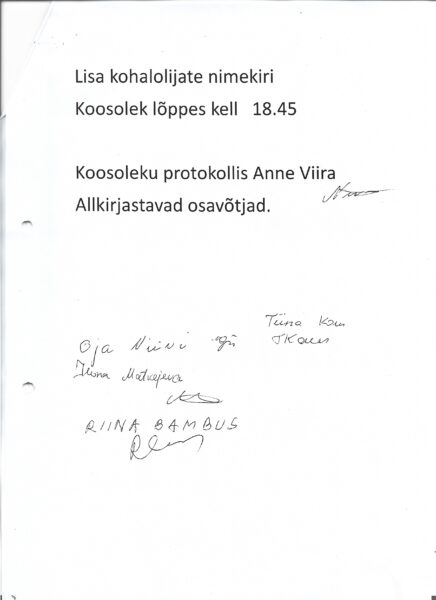 Lisa kohalolijate nimekiri
Koosolek lõppes kell 18.45
Koosoleku protokollis Anne Viira
Allkirjastavad osavõtjad.
Tiina
Oja Niini
Ilona Matvejeva
RIINA BAMBUS